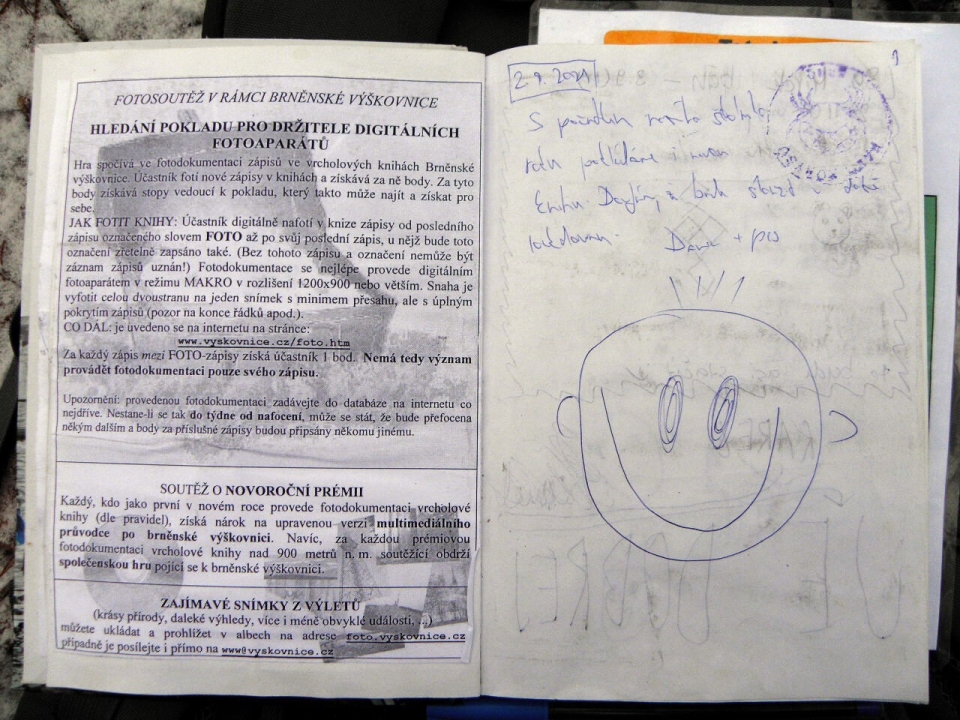 FOTOSOUTĚŽ V RÁMCI BRNĚNSKÉ VÝŠKOVNICE
HLEDÁNÍ POKLADU PRO DRŽITELE DIGITÁLNÍCH
FOTOAPARÁTŮ
Hra spočívá ve fotodokumentaci zápisů ve vrcholových knihách Brněnské
výškovnice. Účastník fotí nové zápisy v knihách a získává za ně body. Za tyto
body získává stopy vedoucí k pokladu, který takto může najít a získat pro
sebe.
JAK FOTIT KNIHY: Účastník digitálně nafotí v knize zápisy od posledního
zápisu označeného slovem FOTO až po svůj poslední zápis, u nějž bude toto
označení zřetelně zapsáno také. (Bez tohoto zápisu a označení nemůže být
záznam zápisů uznán!) Fotodokumentace se nejlépe provede digitálním
fotoaparátem v režimu MAKRO v rozlišení 1200x900 nebo větším. Snaha je
vyfotit celou dvoustranu na jeden snímek s minimem přesahu, ale s úplným
pokrytím zápisů (pozor na konce řádků apod.).
CO DÁL: je uvedeno se na internetu na stránce:
www.vyskovnice.cz/foto.htm
Za každý zápis mezi FOTO-zápisy získá účastník 1 bod. Nemá tedy význam
provádět fotodokumentaci pouze svého zápisu.
Upozornění: provedenou fotodokumentaci zadávejte do databáze na internetu co
nejdříve. Nestane-li se tak do týdne od nafocení, může se stát, že bude přefocena
někým dalším a body za příslušné zápisy budou připsány někomu jinému.
SOUTĚŽ O NOVOROČNÍ PRÉMII
Každý, kdo jako první v novém roce provede fotodokumentaci vrcholové
knihy (dle pravidel), získá nárok na upravenou verzi multimediálního
průvodce po brněnské výškovnici. Navíc, za každou prémiovou
fotodokumentaci vrcholové knihy nad 900 metrů n. m. soutěžící obdrží
společenskou hru pojící se k brněnské výškovnici.
ZAJÍMAVÉ SNÍMKY Z VÝLETŮ
(krásy přírody, daleké výhledy, více i méně obvyklé události, ...)
můžete ukládat a prohlížet v albech na adrese foto.vyskovnice.cz
případně je posílejte i přímo na www@vyskovnice.cz
2.9.2021
S